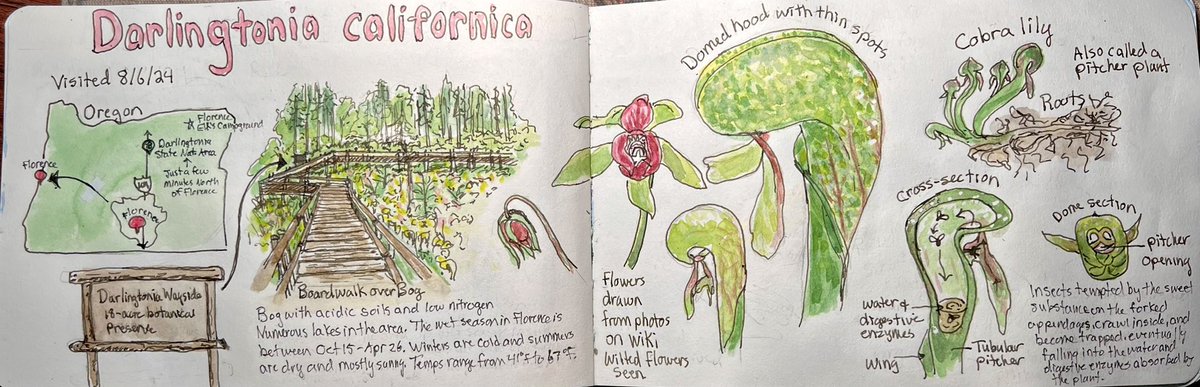 Darlingtonia californica
Visited 8/6/24
Oregon
Florence
Elk's Campground
Darlingtonia
State Nat. Area
Just a few
minutes North
of Florence
Florence
101
Florence
Darlingtonia Wayside
18-acre botanical
Preserve
Boardwalk over Bog
Bog with acidic soils and low nitrogen
Numerous lakes in the area. The wet season in Florence is
between Oct 15-Apr 26. Winters are cold and summers
are dry and mostly sunny. Temps range from 41°F to 67°F.
Domed hood with thin spots
Flowers
drawn
from photos
on wiki,
wilted flowers
seen
Cobra lily
Also called a
pitcher plant
Roots
Cross-section
water &
digestive
enzymes
wing
Tubular
pitcher
Dome section
pitcher
Opening
Insects tempted by the sweet
substance on the forked
appendages, crawl inside, and
become trapped, eventually
falling into the water and
digestive enzymes absorbed by
the plant.